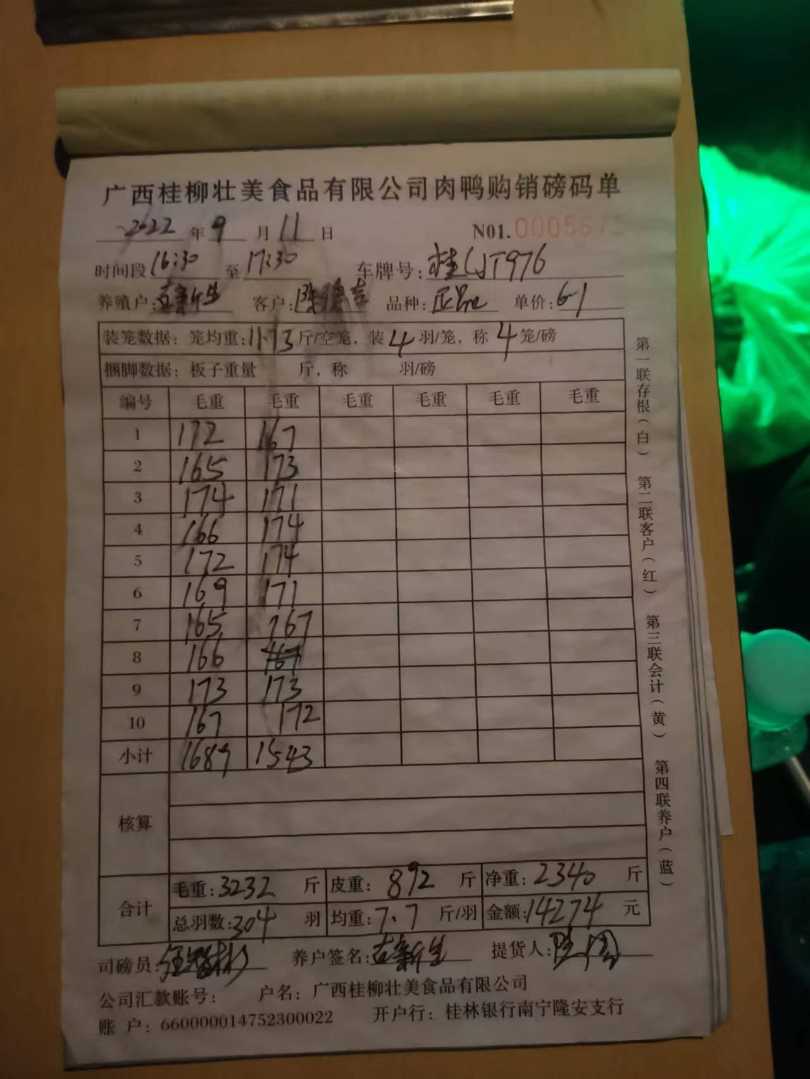 广西桂柳壮美食品有限公司肉鸭购销磅码单
2022 年 9 月 11 日 N01.00056
时间段 16:30 至 17:30 车牌号: 桂 T976
养殖户: 新生 客户: 陈 品种: 正品 单价: 6-1
装笼数据: 笼均重: 11.73 斤/空笼, 装 4 羽/笼, 称 4 笼/磅
捆脚数据: 板子重量 斤, 称 羽/磅
编号 毛重 毛重 毛重 毛重 毛重 毛重
1 172 167
2 165 173
3 174 171
4 166 174
5 172 174
6 169 171
7 165 167
8 166
9 173 173
10 167 172
小计 1689 1543
核算
合计 毛重: 3232 斤 皮重: 892 斤 净重: 2340 斤
总羽数: 304 羽 均重: 7.7 斤/羽 金额: 14274 元
司磅员: 养户签名: 新生 提货人: 陈
公司汇款账号: 户名: 广西桂柳壮美食品有限公司
账 户: 660000014752300022 开户行: 桂林银行南宁隆安支行
第一联存根(白) 第二联客户(红) 第三联会计(黄) 第四联养户(蓝)